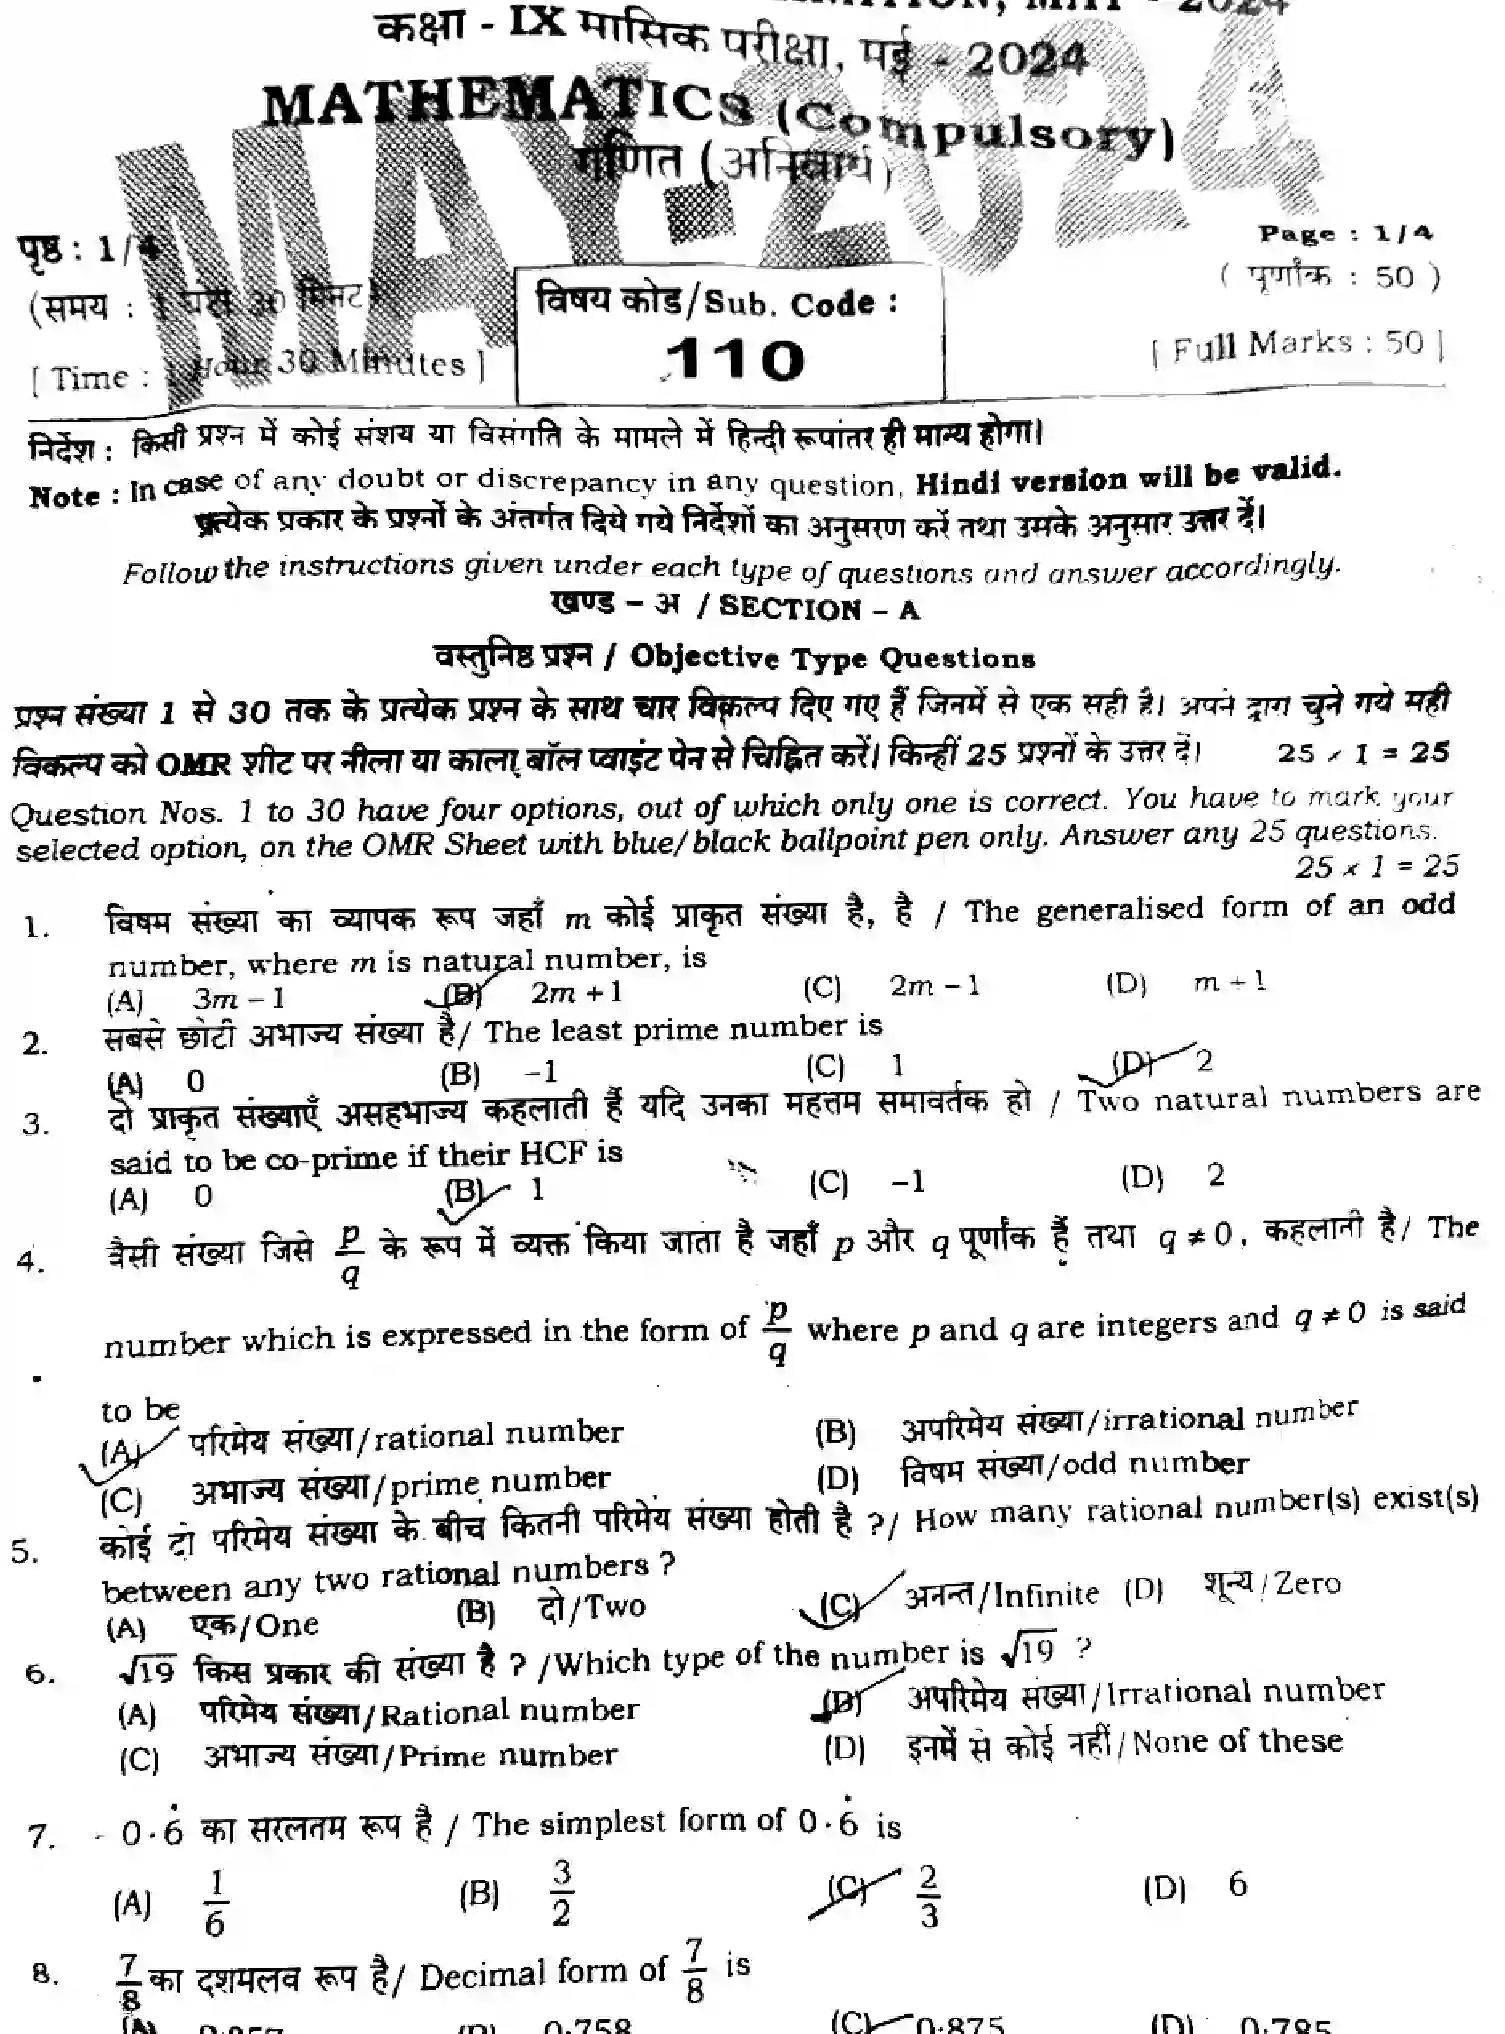 कक्षा - IX मासिक परीक्षा, मई - 2024
MATHEMATICS (Compulsory)
गणित (अनिवार्य)
MAY-2024
पृष्ठ : 1/4
Page : 1/4
(समय : 1 घंटा 30 मिनट)
विषय कोड/Sub. Code :
( पूर्णांक : 50 )
[ Time : 1 Hour 30 Minutes ]
110
[ Full Marks : 50 ]
निर्देश : किसी प्रश्न में कोई संशय या विसंगति के मामले में हिन्दी रूपांतर ही मान्य होगा।
Note : In case of any doubt or discrepancy in any question, Hindi version will be valid.
प्रत्येक प्रकार के प्रश्नों के अंतर्गत दिये गये निर्देशों का अनुसरण करें तथा उसके अनुसार उत्तर दें।
Follow the instructions given under each type of questions and answer accordingly.
खण्ड – अ / SECTION – A
वस्तुनिष्ठ प्रश्न / Objective Type Questions
प्रश्न संख्या 1 से 30 तक के प्रत्येक प्रश्न के साथ चार विकल्प दिए गए हैं जिनमें से एक सही है। अपने द्वारा चुने गये सही
विकल्प को OMR शीट पर नीला या काला बॉल प्वाइंट पेन से चिह्नित करें। किन्हीं 25 प्रश्नों के उत्तर दें। 25 × 1 = 25
Question Nos. 1 to 30 have four options, out of which only one is correct. You have to mark your
selected option, on the OMR Sheet with blue/black ballpoint pen only. Answer any 25 questions.
25 × 1 = 25
1. विषम संख्या का व्यापक रूप जहाँ m कोई प्राकृत संख्या है, है / The generalised form of an odd
number, where m is natural number, is
(A) 3m – 1 (B) 2m + 1 (C) 2m – 1 (D) m + 1
2. सबसे छोटी अभाज्य संख्या है/ The least prime number is
(A) 0 (B) –1 (C) 1 (D) 2
3. दो प्राकृत संख्याएँ असहभाज्य कहलाती हैं यदि उनका महत्तम समावर्तक हो / Two natural numbers are
said to be co-prime if their HCF is
(A) 0 (B) 1 (C) –1 (D) 2
4. वैसी संख्या जिसे p/q के रूप में व्यक्त किया जाता है जहाँ p और q पूर्णांक हैं तथा q ≠ 0, कहलाती है/ The
number which is expressed in the form of p/q where p and q are integers and q ≠ 0 is said
to be
(A) परिमेय संख्या/rational number (B) अपरिमेय संख्या/irrational number
(C) अभाज्य संख्या/prime number (D) विषम संख्या/odd number
5. कोई दो परिमेय संख्या के बीच कितनी परिमेय संख्या होती है ?/ How many rational number(s) exist(s)
between any two rational numbers ?
(A) एक/One (B) दो/Two (C) अनन्त/Infinite (D) शून्य/Zero
6. √19 किस प्रकार की संख्या है ? /Which type of the number is √19 ?
(A) परिमेय संख्या/Rational number (B) अपरिमेय संख्या/Irrational number
(C) अभाज्य संख्या/Prime number (D) इनमें से कोई नहीं/None of these
7. 0·6̇ का सरलतम रूप है / The simplest form of 0·6̇ is
(A) 1/6 (B) 3/2 (C) 2/3 (D) 6
8. 7/8 का दशमलव रूप है/ Decimal form of 7/8 is
(A) (B) 0·758 (C) 0·875 (D) 0·785